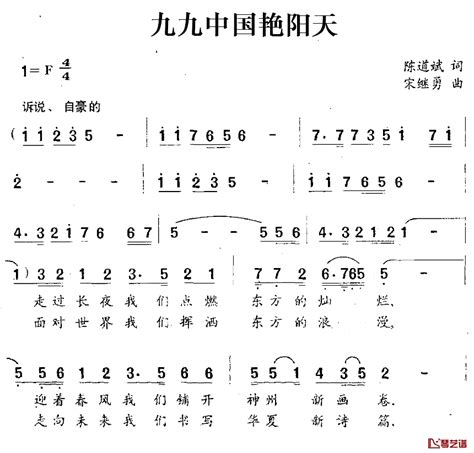 九九中国艳阳天
1=F 4/4
陈道斌 词
宋继勇 曲
诉说、自豪的
(1 1 2 3 5 - | 1 1 7 6 5 6 - | 7. 7 7 3 5 1 7 1
2 - - - | 1 1 2 3 5 - | 1 1 7 6 5 6 -
4. 3 2 1 7 6 | 5 - - 5 5 6 | 4. 3 2 1 2 2 1
1) 3 2 1 2 3. 5 2 | 7 7 2 6. 7 6 5 5
走过长夜我们点燃 东方的灿烂,
面对世界我们挥洒 东方的浪漫,
5 5 6 1 2 3. 5 2 | 5 5 1 3 2 2 -
迎着春风我们铺开 神州新画卷.
走向未来我们书写 华夏新诗篇.
琴艺谱